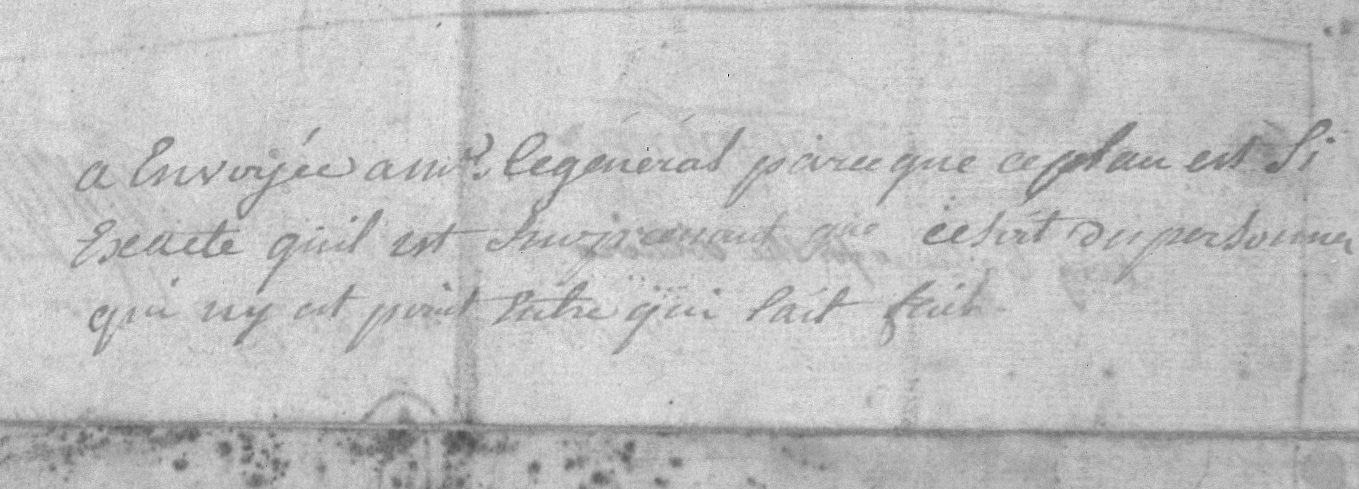 a Envoyée a mr. le général parce que ce plan est Si
Exacte quil est Surprenant que cesoit du personner
qui ny est point Entré qui lait fait